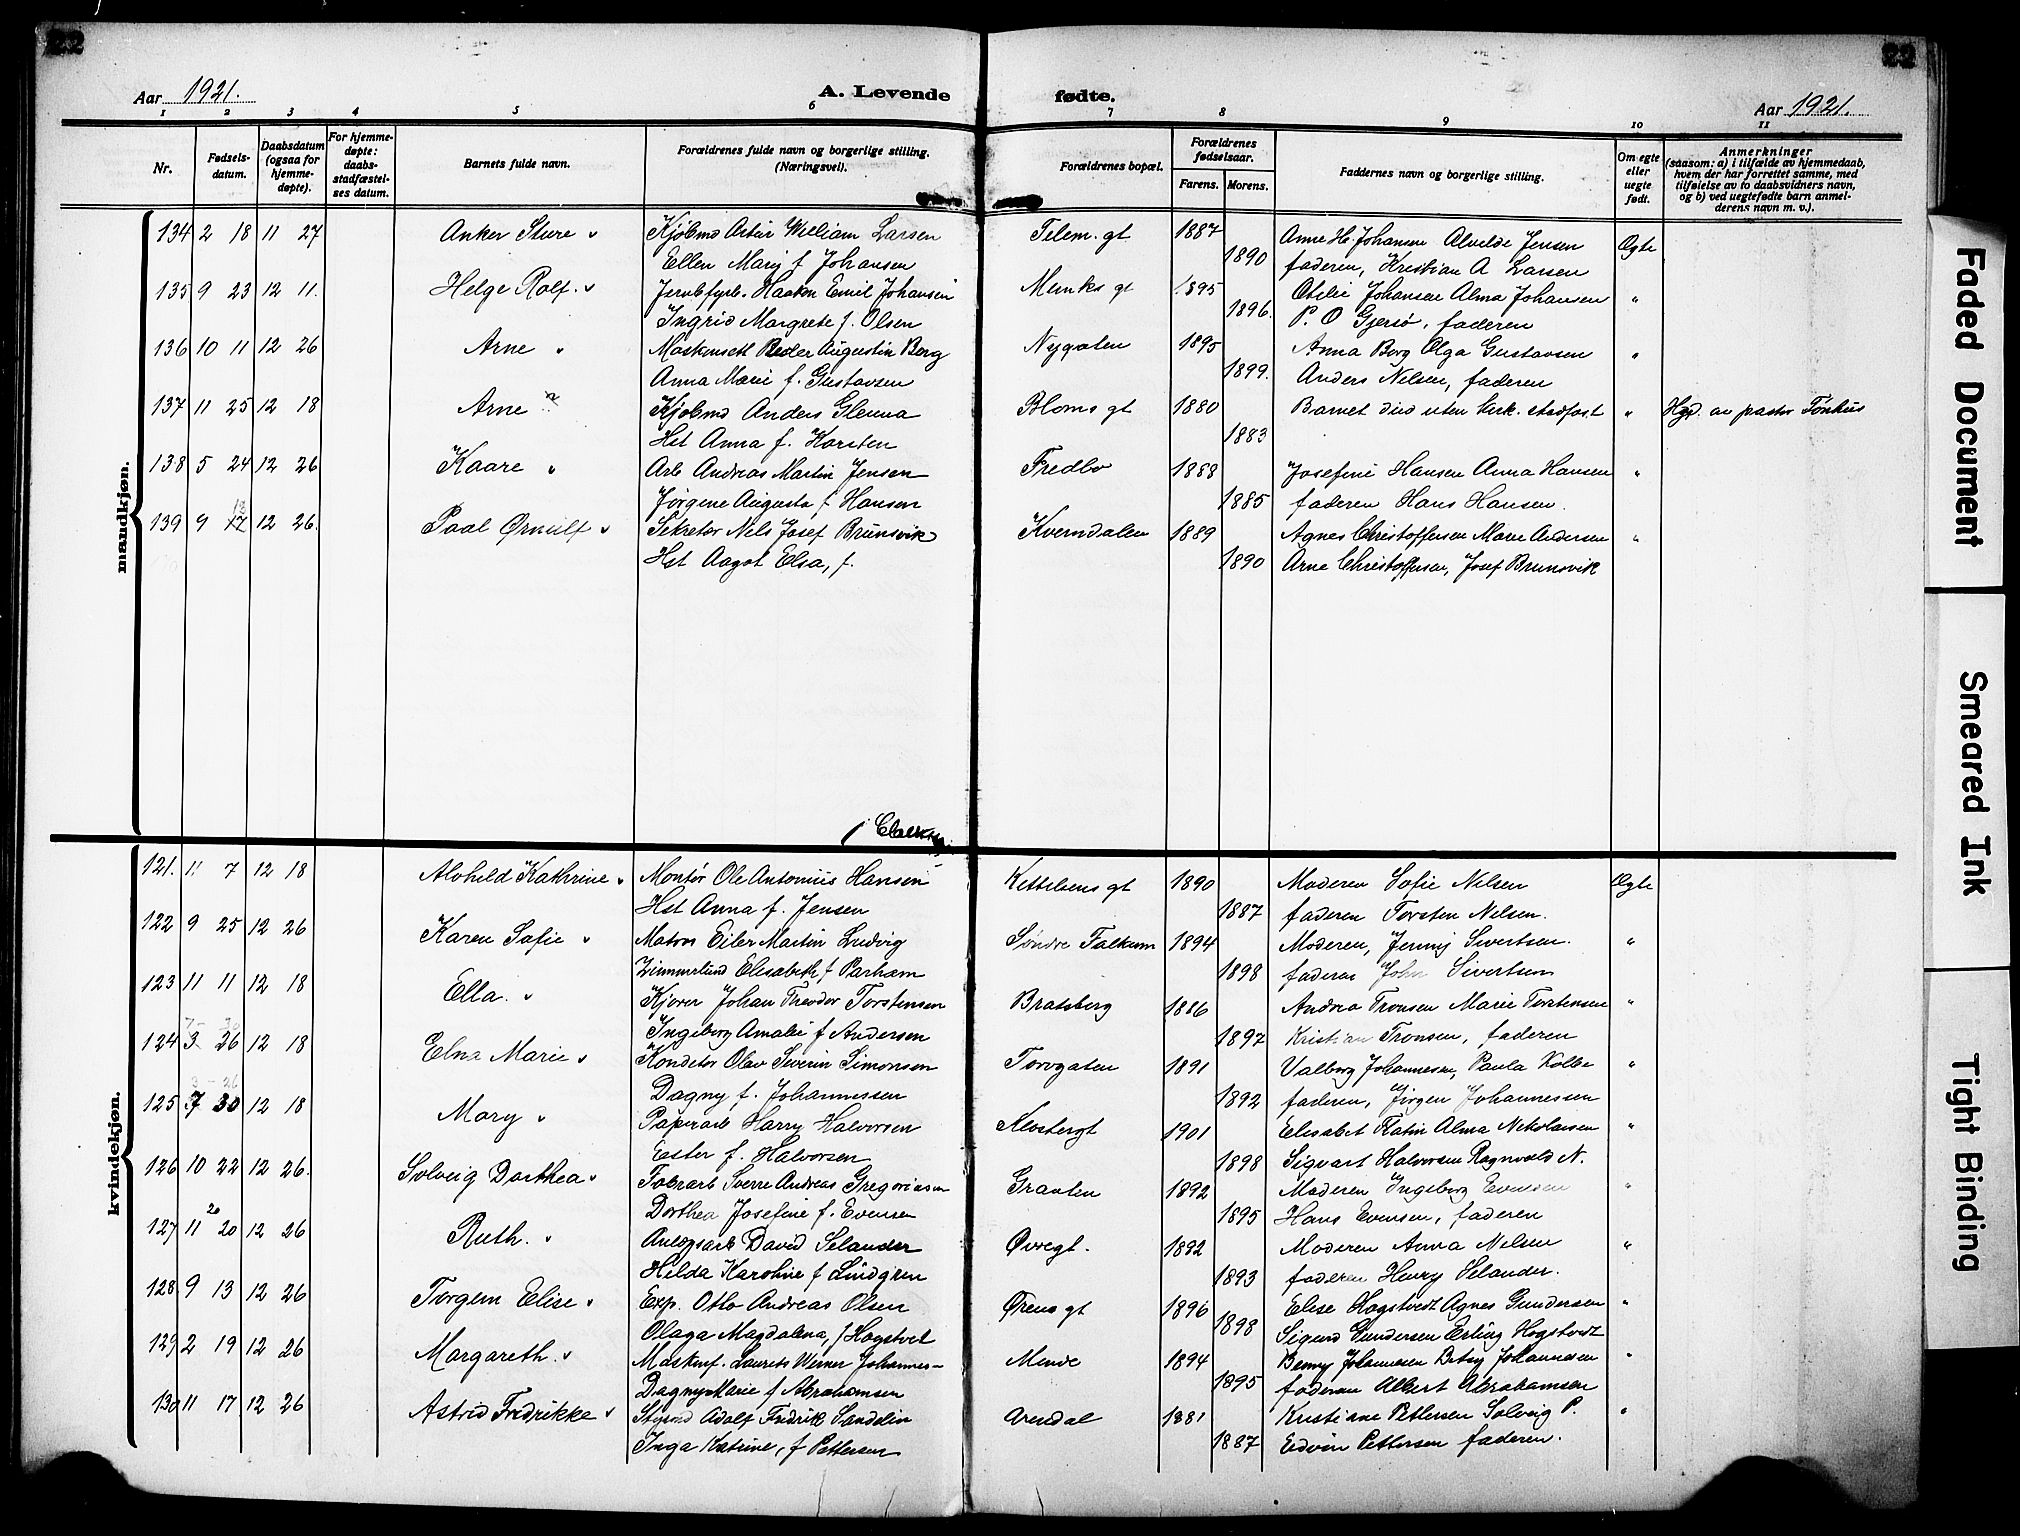 22
22
Aar 1921.
A. Levende fødte.
Aar 1921.
1 2 3 4 5 6 7 8 9 10 11
Nr.
Fødsels-
datum.
Daabsdatum
(ogsaa for
hjemme-
døpte).
For hjemme-
døpte:
daabs-
stadfæstel-
ses datum.
Barnets fulde navn.
Forældrenes fulde navn og borgerlige stilling.
(Næringsvei).
Forældrenes bopæl.
Forældrenes
fødselsaar.
Farens. Morens.
Faddernes navn og borgerlige stilling.
Om egte
eller
uegte
født.
Anmerkninger
(saasom: a) i tilfælde av hjemmedaab,
hvem der har forrettet samme, med
tilføielse av to daabsvidners navn,
og b) ved uegtefødte barn anmel-
derens navn m. v.).
mandkjøn.
134 2 18 11 27 Anker Sture " Kjøbmd Artur William Larsen Telem. gt 1887 Anne H. Johansen Alvilde Jensen Ægte
Ellen Marj f Johansen 1890 faderen, Kristian A Larsen
135 9 23 12 11. Helge Rolf. " Jernbfyrb. Haakon Emil Johansen Munks gt 1895 Otilie Johansen Alma Johansen "
Ingrid Margrete f. Olsen 1896. P. O Gjersø, faderen
136 10 11 12 26 Arne " Maskinsett Peder Augustin Berg Nygaten 1895 Anna Borg Olga Gustavsen "
Anna Marie f. Gustavsen 1899. Anders Nilsen, faderen
137 11 25 12 18 Arne " Kjøbmd Anders Glenna Bloms gt 1880 Barnet død uten kirk. stadfæst " Hgd. av pastor Tønhus
Hst Anna f. Karsten 1883
138 5 24 12 26 Kaare " Arb Andreas Martin Jensen Fredbo 1888 Josefine Hansen Anna Hansen "
Jørgine Augusta f Hansen 1885 faderen Hans Hansen.
139 9 17 12 26. Paal Ørnulf " Sekretær Nils Josef Brunsvik Kverndalen 1889 Agnes Christoffersen Marie Andersen "
Hst Aagot Elsa, f. 1890 Arne Christoffersen, Josef Brunsvik
kvindekjøn.
121. 11 7 12 18 Alvhild Kathrine " Montør Ole Antonius Hansen Kittelsens gt 1890 Moderen Sofie Nilsen Ægte
Hst Anna f. Jensen 1887 faderen Torsten Nelsen.
122 9 25 12 26 Karen Sofie " Matros Eiler Martin Ludvig Søndre Falkum 1894 Moderen, Jenny Sivertsen. "
Zimmerlund Elisabeth f Parham 1898 faderen John Sivertsen
123 11 11 12 18 Ella. " Kjører Johan Theodor Torstensen Bratsberg 1886 Andrea Tronsen Marie Torstensen "
Ingeborg Amalie f Andersen 1897 Kristian Tronsen, faderen
124 3 26 12 18 Elna Marie " Konditor Olav Severin Simonsen Torvgaten 1891 Valborg Johannesen, Paula Kolbe "
Dagny f. Johannessen 1892 faderen, Jørgen Johannessen
125 7 30 12 18 Mary " Papirarb Harry Halvorsen 1901 Elisabet Katin Alma Nikolaisen "
Ester f. Halvorsen 1898 Sigvart Halvorsen Ragnvald N.
126 10 22 12 26. Solveig Dorthea " Fabrarb Sverre Andreas Gregoriusen Graaten 1892 Moderen Ingeborg Evensen "
Dorthea Josefine f. Evensen 1895 Hans Evensen, faderen
127 11 20 12 26 Ruth. " Anlægsarb David Selander Øvregt. 1892 Moderen Anna Nilsen "
Hilda Karoline f Lindgren 1893 faderen Henry Selander.
128. 9 13 12 26 Torgem Elise " Exp. Otto Andreas Olsen Ørens gt 1896 Elise Hogstvedt Agnes Gundersen "
Olaga Magdalena, f Hogstvet 1898 Sigurd Gundersen Erling Hogstvedt
129 2 19 12 26 Margareth. " Maskinf. Laurits Werner Johannes- Menve 1894 Benny Johannesen Betsy Johannesen "
Dagny Marie f Abrahamsen 1895 faderen Albert Abrahamsen
130 11 17 12 26 Astrid Fredrikke " Styrmd Adolf Fredrik Sandelin Arendal 1881 Kristiane Pettersen Solveig P. "
Inga Katrine, f Pettersen 1887 Edvin Pettersen faderen.
Faded Document
Smeared Ink
Tight Binding